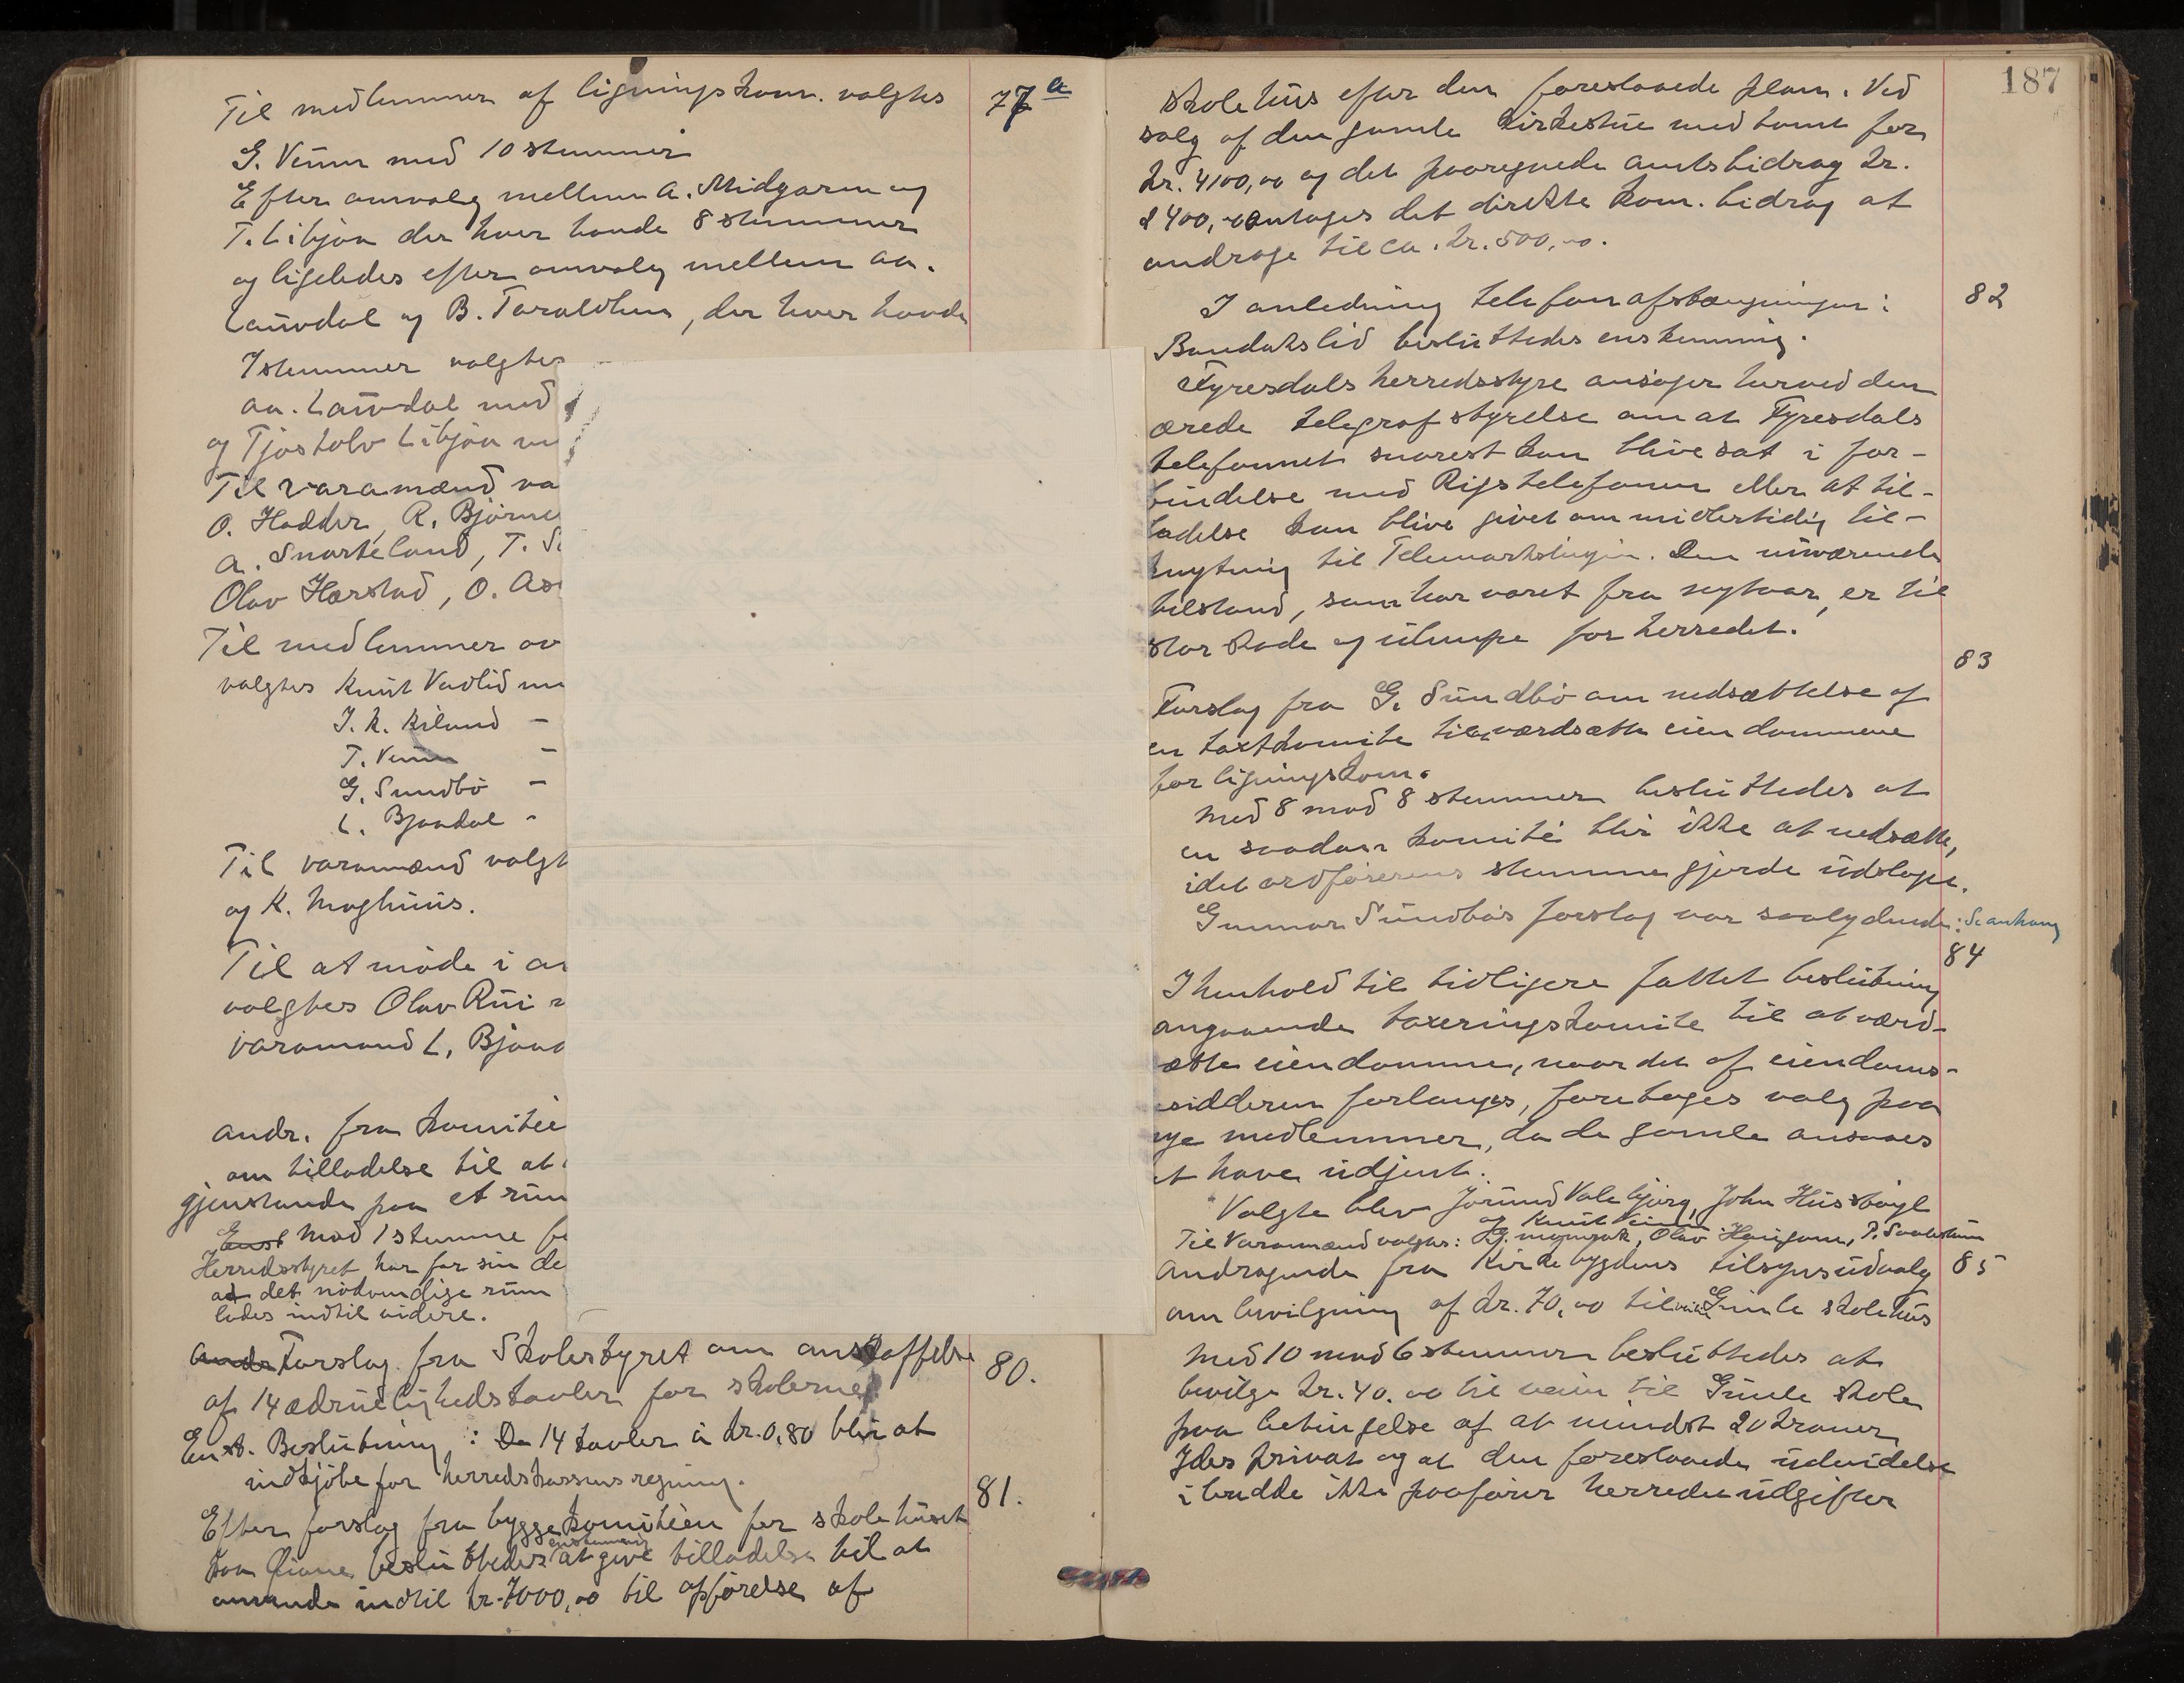 Til medlemmer af ligningskom. valgtes 77 a
G. Veum med 10 stemmer
Efter omvalg mellem A. Midgarm og
T. Libjön der hver havde 8 stemmer
og ligeledes efter omvalg mellem Aa.
Lauvdal og B. Taraldlien, der hver havde
7 stemmer valgtes
Aa. Lauvdal med
og Tjostolv Libjön
Til varamænd va
O. Hodder, R. Björne
A. Snarteland, T.
Olav Harstad, O. As
Til medlemmer av
valgtes Knut Vadlid
J. K. Kiland -
T. Veum -
G. Sundbö -
L. Bjaadal -
Til varamænd valgt
og K. Moghuus.
Til at möde i
valgtes Olav Rui
varamand L. Bjaad
Andr. fra komitée
om tilladelse til at
gjenstande paa et rum
Enst Mod 1 stemme be
Herredsstyret har for sin de
at det nödvendige rum
lades indtil videre.
Andr Forslag fra Skolestyret om anskaffelse 80.
af 14 ædruelighedstavler for skolerne
Enst. Beslutning: De 14 tavler à kr. 0,80 blir at
indkjöbe for herredskassens regning.
81.
Efter forslag fra byggekomitéen for skolehuset
paa besluttedes enstemmig at give tilladelse til at
anvende indtil kr. 7000,00 til opförelse af
187
skolehus efter den foreslaaede plan. Ved
salg af den gamle Kirkestue med tomt for
kr. 4100,00 og det paaregnede amtsbidrag kr.
2400,00 antages det direkte kom. bidrag at
andrage til ca. kr. 500,00.
I anledning telefonafstængningen i 82
Bandakslid besluttedes enstemmig.
Fyresdals herredsstyre ansöger herved den
ærede telegrafstyrelse om at Fyresdals
telefonnet snarest kan blive sat i for-
bindelse med Rigstelefonen eller at til-
ladelse kan blive givet om midlertidig til-
knytning til Telemarkslinjen. Den nuværende
tilstand, som har varet fra nytaar, er til
stor skade og ulempe for herredet.
83
Forslag fra G. Sundbö om nedsættelse af
en taxtkomite til at værdsætte eiendommene
for ligningskom.
Med 8 mod 8 stemmer besluttedes at
en saadan komité blir ikke at nedsætte,
idet ordförerens stemme gjorde udslaget.
Gunnar Sundbös forslag var saalydende: Se anhang
84
I henhold til tidligere fattet beslutning
angaaende taxeringskomite til at værd-
ætte eiendomme, naar det af eiendoms-
sidderen forlanges, foretages valg paa
nye medlemmer, da de gamle ansaaes
at have udtjent.
Valgte blev Jörund Valebjörg, John Huusstöyl
og Knut Veum
Til Varamænd valgtes: G. Momrak, Olav Haugom, P.
Andragende fra Kirkebygdens tilsynsudvalg 85
om bevilgning af kr. 70,00 til vei til Gimle skolehus
Med 10 mod 6 stemmer besluttedes at
bevilge kr. 40.00 til veien til Gimle skole
paa betingelse af at mindst 20 kroner
ydes privat og at den foreslaaede udvidelse
i bredde ikke paaförer herredet udgifter